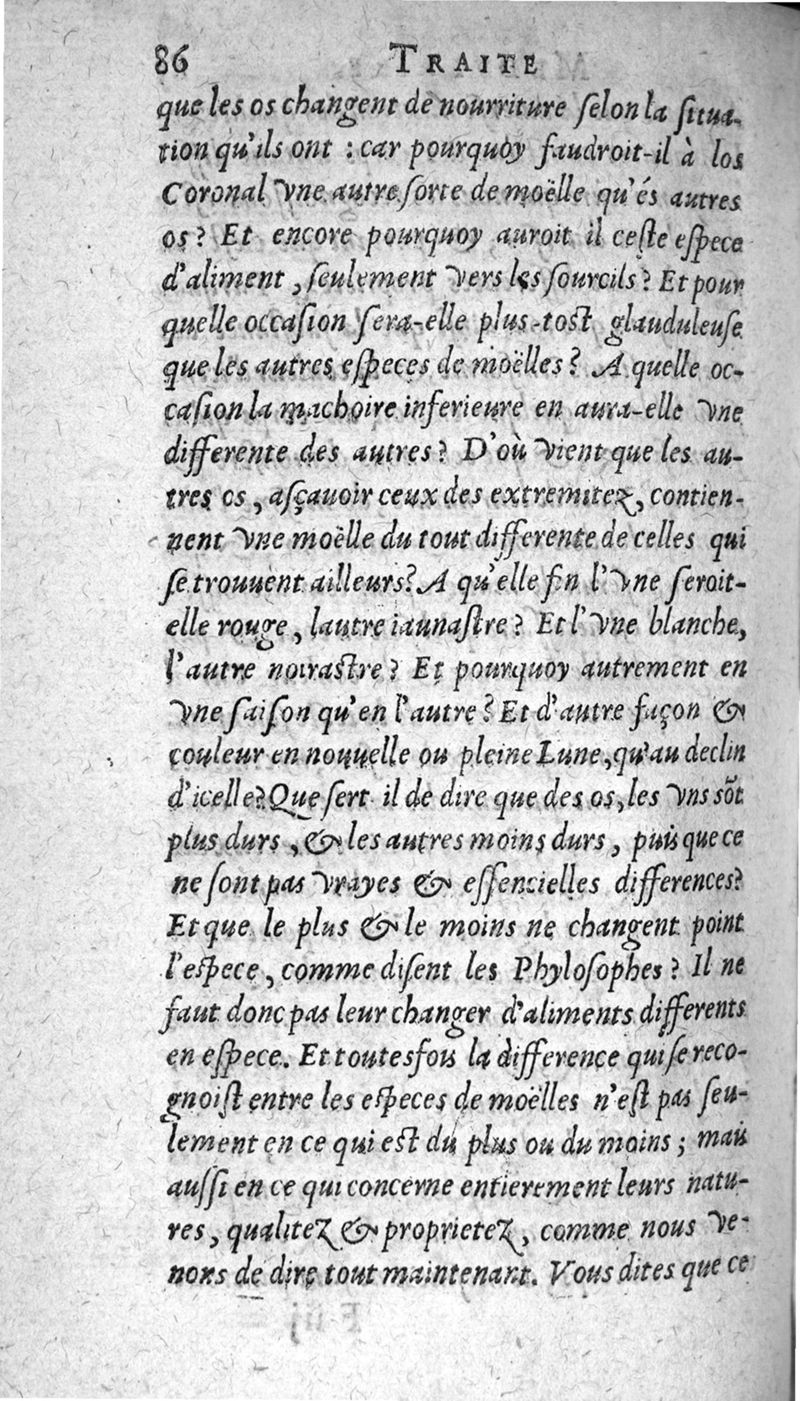 86 TRAITE
que les os changent de nourriture ſelon la ſitua-
tion qu'ils ont : car pourquoy faudroit-il à los
Coronal vne autre ſorte de moëlle qu'és autres
os? Et encore pourquoy auroit il ceſte eſpece
d'aliment, ſeulement vers les ſourcils? Et pour
quelle occaſion ſera-elle plus-toſt glauduleuſe
que les autres eſpeces de moëlles? A quelle oc-
caſion la machoire inferieure en aura-elle vne
differente des autres? D'où vient que les au-
tres os, aſçauoir ceux des extremitez, contien-
nent vne moëlle du tout differente de celles qui
ſe trouuent ailleurs? A qu'elle fin l'vne ſeroit-
elle rouge, lautre iaunaſtre? Et l'vne blanche,
l'autre noiraſtre? Et pourquoy autrement en
vne ſaiſon qu'en l'autre? Et d'autre façon &
couleur en nouuelle ou pleine Lune, qu'au declin
d'icelle? Que ſert il de dire que des os, les vns sõt
plus durs, & les autres moins durs, puis que ce
ne ſont pas vrayes & eſſencielles differences?
Et que le plus & le moins ne changent point
l'eſpece, comme diſent les Phyloſophes? Il ne
faut donc pas leur changer d'aliments differents
en eſpece. Et toutesfois la difference qui ſe reco-
gnoiſt entre les eſpeces de moëlles n'eſt pas ſeu-
lement en ce qui eſt du plus ou du moins ; mais
auſſi en ce qui concerne entierement leurs natu-
res, qualitez & proprietez, comme nous ve-
nons de dire tout maintenant. Vous dites que ce